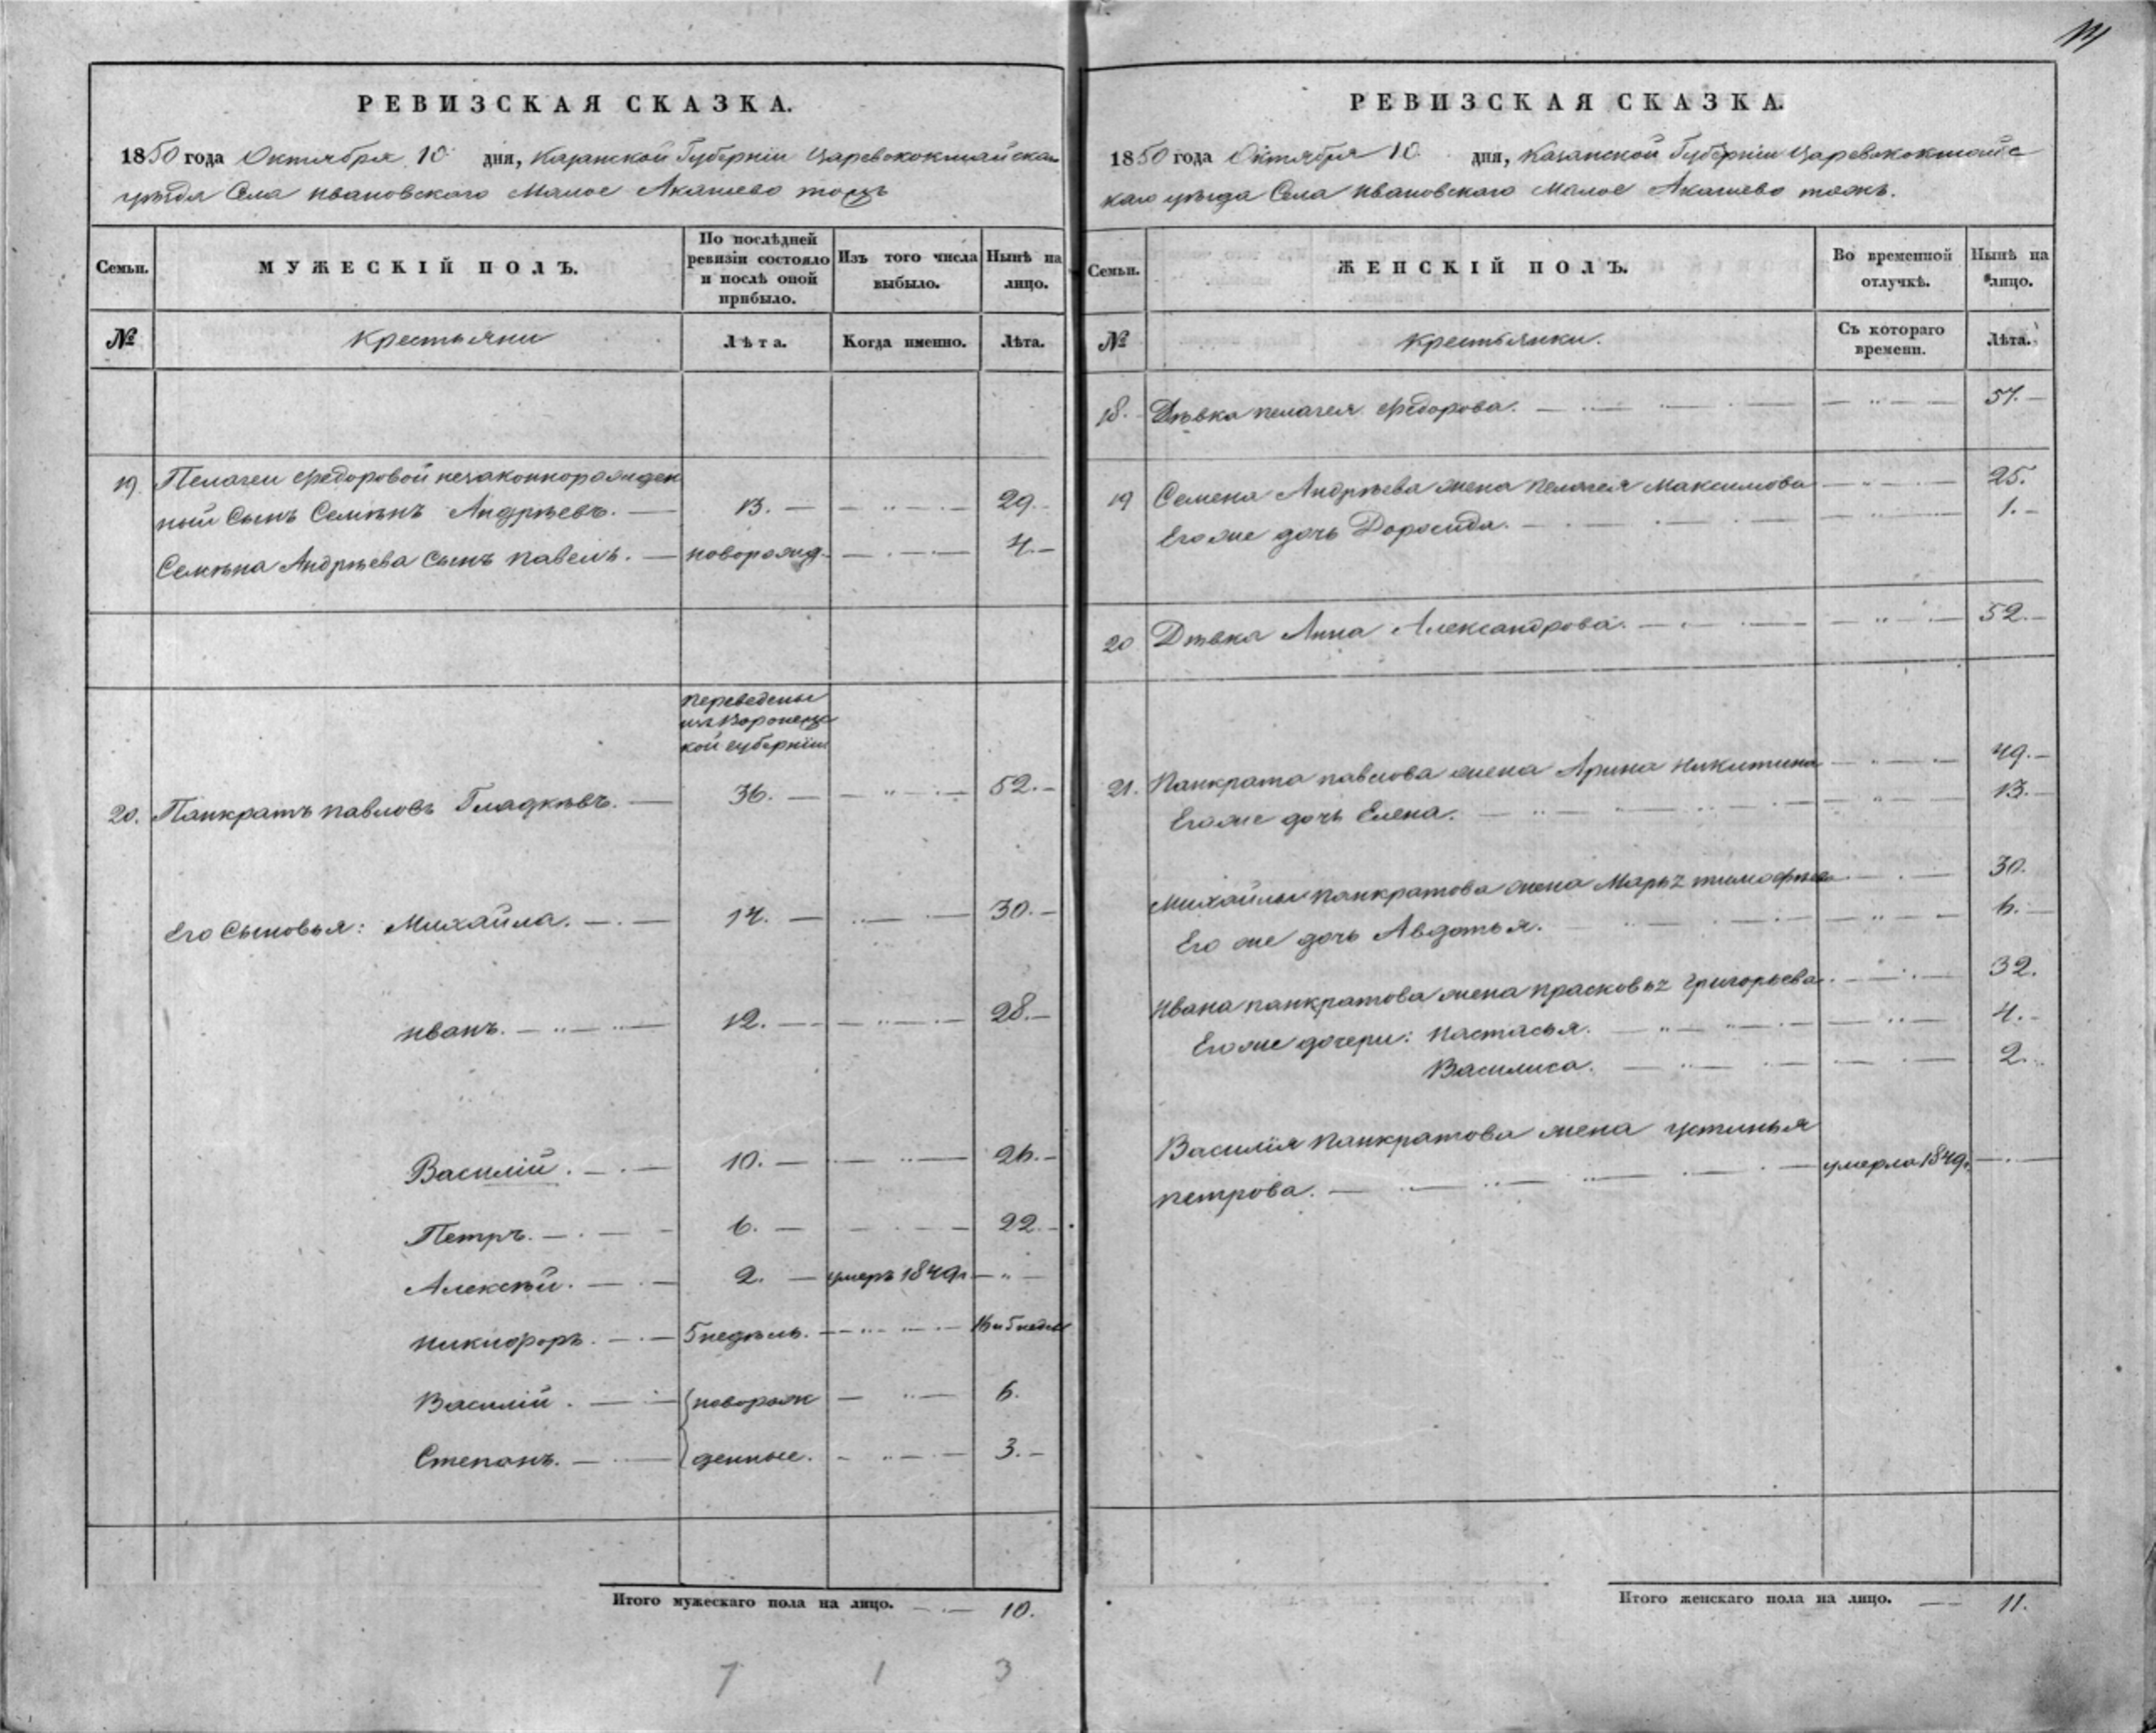 РЕВИЗСКАЯ СКАЗКА.
1850 года Октября 10 дня, Казанской Губерніи Царевококшайскаго
уѣзда Села Ивановскаго Малое Акашево тожъ
Семьи.
МУЖЕСКІЙ ПОЛЪ.
По послѣдней ревизіи состояло и послѣ оной прибыло.
Изъ того числа выбыло.
Нынѣ на лицо.
№
Крестьяни
Лѣта.
Когда именно.
Лѣта.
19. Пелагеи Федоровой незаконнорожден
ный Сынъ Семѣнъ Андрѣевъ. 13. 29.
Семѣна Андрѣева Сынъ Павелъ. новорожд. 4.
переведены
изъ Воронежс
кой губерніи
20. Панкратъ Павловъ Гладкѣвъ. 36. 52.
Его Сыновья: Михайла. 14. 30.
Иванъ. 12. 28.
Василій. 10. 26.
Петръ. 6. 22.
Алексѣй. 2. умеръ 1849г.
Никифоръ. 5 недѣль. 16 и 5 недел
Василій. новорож 6.
Степанъ. денные. 3.
Итого мужескаго пола на лицо. 10.
7 1 3
РЕВИЗСКАЯ СКАЗКА.
1850 года Октября 10 дня, Казанской Губерніи Царевококшайс
каго уѣзда Села Ивановскаго Малое Акашево тожъ.
Семьи.
ЖЕНСКІЙ ПОЛЪ.
Во временной отлучкѣ.
Нынѣ на лицо.
№
Крестьянки.
Съ котораго времени.
Лѣта.
18. Дѣвка Пелагея Федорова. 57.
19 Семена Андрѣева жена Пелагея Максимова 25.
Его же дочь Доросида. 1.
20 Дѣвка Анна Александрова. 52.
21. Панкрата Павлова жена Арина Никитина 49.
Его же дочь Елена. 13.
Михайлы Панкратова жена Марья Тимофѣева 30.
Его же дочь Авдотья. 6.
Ивана Панкратова жена Прасковья Григорьева 32.
Его же дочери: Настасья. 4.
Василиса. 2.
Василія Панкратова жена Устинья
Петрова. умерла 1849г.
Итого женскаго пола на лицо. 11.